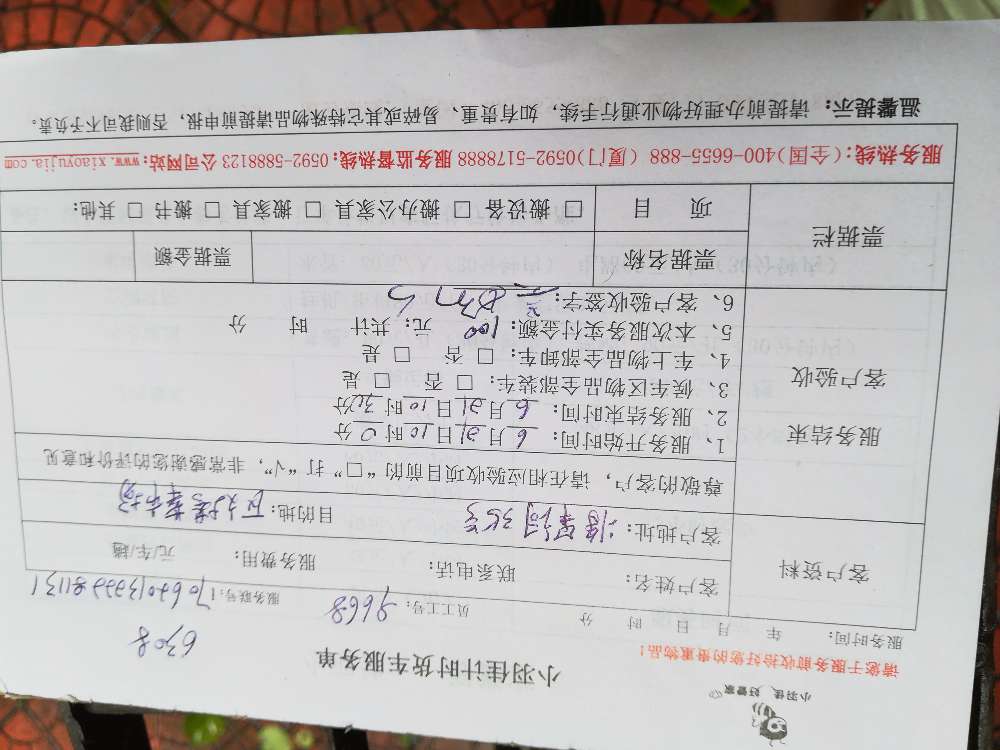 小羽佳、好管家
请您于服务前收拾好您的贵重物品!
小羽佳计时货车服务单
6308
服务时间: 年 月 日 时 分
员工工号: 9668
服务联号:
客户资料
客户姓名: 联系电话: 服务费用: 元/车/趟
客户地址: 35号 目的地:
服务结束
客户验收
尊敬的客户,请在相应验收项目前的“□”打“√”,非常感谢您的评价和意见
1、服务开始时间: 6 月 21 日 10 时 0 分
2、服务结束时间: 6 月 21 日 10 时 30 分
3、候车区物品全部装车: □ 否 □ 是
4、车上物品全部卸车: □ 否 □ 是
5、本次服务实付金额: 100 元; 共计 时 分
6、客户验收签字:
票据栏
票据名称 票据金额
项 目 □ 搬设备 □ 搬办公家具 □ 搬家具 □ 搬书 □ 其他:
服务热线:(全国)400-6655-888 (厦门)0592-5178888 服务监督热线:0592-5888123 公司网站:www.xiaoyujia.com
温馨提示: 请提前办理好物业通行手续,如有贵重、易碎或其它特殊物品请提前申报,否则我司不予负责。